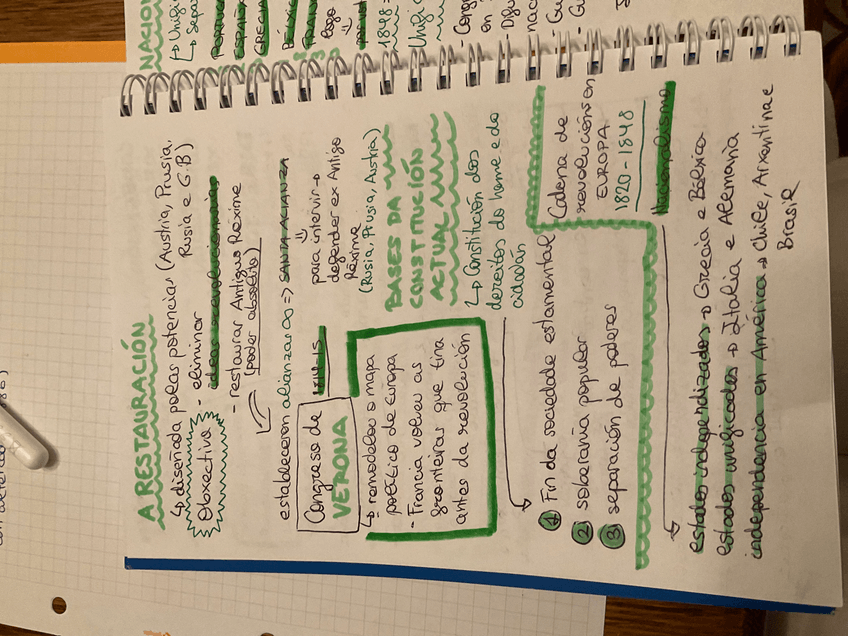 A RESTAURACIÓN
↳ diseñada polas potencias (Austria, Prusia,
Rusia e G.B)
Obxectivo
- eliminar
ideas revolucionarias
- restaurar Antiguo Réxime
(poder absoluto)
estableceron alianzas ∞ => SANTA ALIANZA
para intervir →
defender ex Antigo
Réxime
(Rusia, Prusia, Austria)
Congreso de 1814-15
VERONA
↳ remodelou o mapa
político de Europa
- Francia volveu as
fronteiras que tiña
antes da revolución
BASES DA
CONSTITUCIÓN
ACTUAL
↳ Constitución dos
dereitos do home e do
cidadán
① Fin da sociedade estamental
② soberanía popular
③ separación de poderes
Cadena de
revolucións en
EUROPA
1820-1848
Nacionalismo
estados independizados → Grecia e Bélxica
estados unificados → Italia e Alemania
independencia en América → Chile, Arxentina e
Brasil
NACION
↳ Unific
↳ Sepa
ESPAÑA
GRECIA
1848 =
Unific
Cong
en
nac
- Gu
- Gu